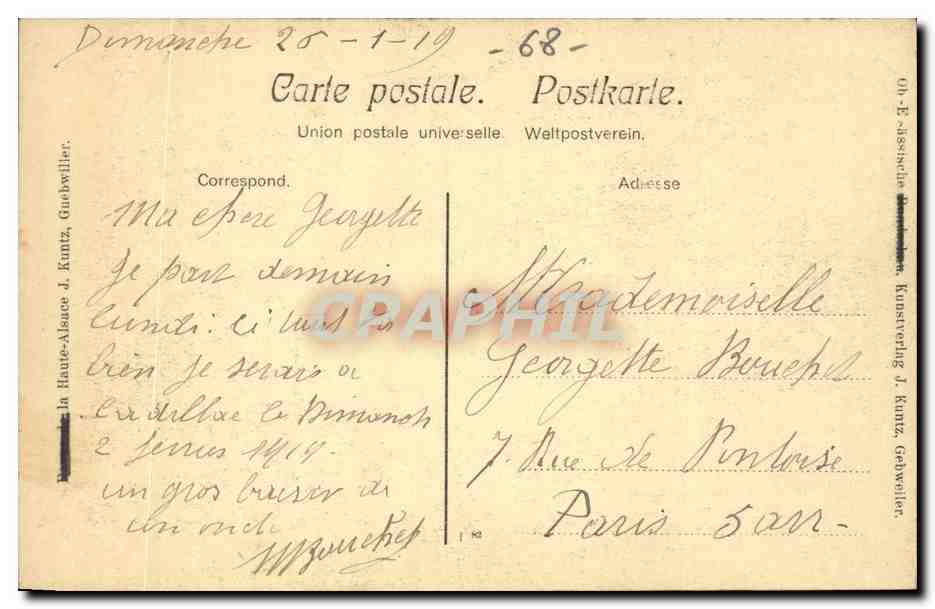 Dimanche 26-1-19 -68-
Carte postale. Postkarte.
Union postale universelle. Weltpostverein.
Correspond.
Adresse
Ma chere Georgette
Je part demain
lundi. Si tout vas
bien je serais a
Cadillac le Dimanche
2 fevrier 1919.
un gros baiser de
ton oncle
Bouchet
Mademoiselle
Georgette Bouchet
7. Rue de Pontoise
Paris 5 arr-
la Haute-Alsace J. Kuntz, Guebwiller.
Ob.-Elsässische Kunstverlag J. Kuntz, Gebweiler.
CRAPHIL